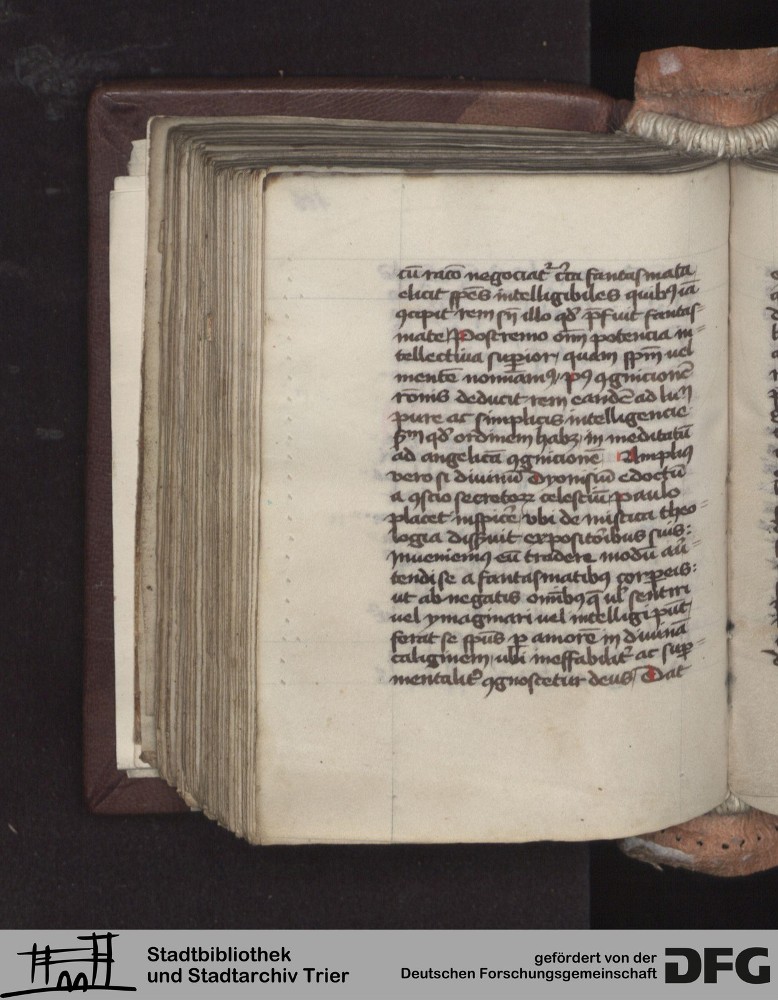 cū racō negociat᷑ c̄ca fantasmata
elicit sp̄es intelligibiles quibꝫ iā
ꝯcipit rem sn̄ illo qd̓ p̄fuit fantas⸗
mate Postremo om̄i potencia in⸗
tellectiua suꝑior, quam sp̄m uel
mentē noīamꝰ, pꝰ ꝯgnicionē
rōnis deducit rem eandē ad
pure ac simplicis intelligencie
qd̓ ordinem habꝫ in meditatū
ad angelicā ꝯgnicionē Amplius
vero si diuinū Dyonisiū edoctū
a ꝯscio secretoꝝ celestiū paulo
placet inspicē, vbi de mistica theo⸗
logia disseruit expositōibus suis:
Inueniemꝰ eū tradere modū at⸗
tendi se a fantasmatibꝫ corꝑeis:
ut ab negatis om̄ibꝫ q̄ ul̓ sentiri
uel ymaginari uel intelligi pn̄t
ferat se sp̄us ꝑ amorē in diuinā
caliginem, ubi ineffabilit᷑ ac suꝑ⸗
mentalit᷑ ꝯgnoscetur deus Dat
Stadtbibliothek
und Stadtarchiv Trier
gefördert von der
Deutschen Forschungsgemeinschaft
DFG